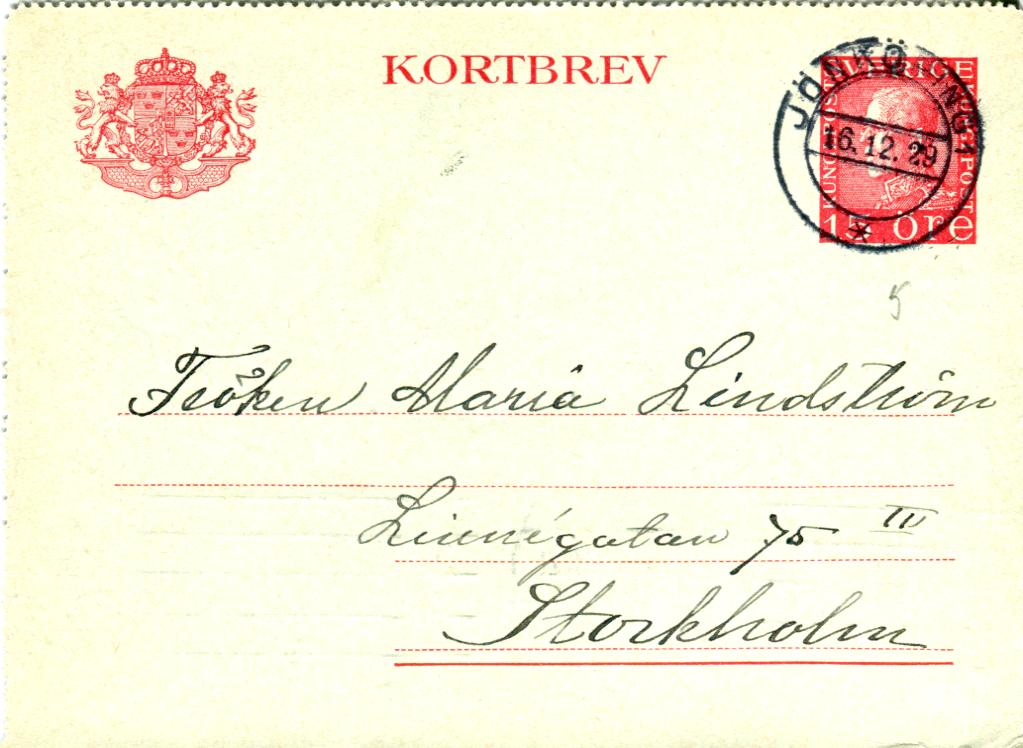 KORTBREV
SVERIGE
15 ÖRE
JÖNKÖPING 1
16.12.29
5
Fröken Maria Lindström
Linnégatan 75 IV
Stockholm